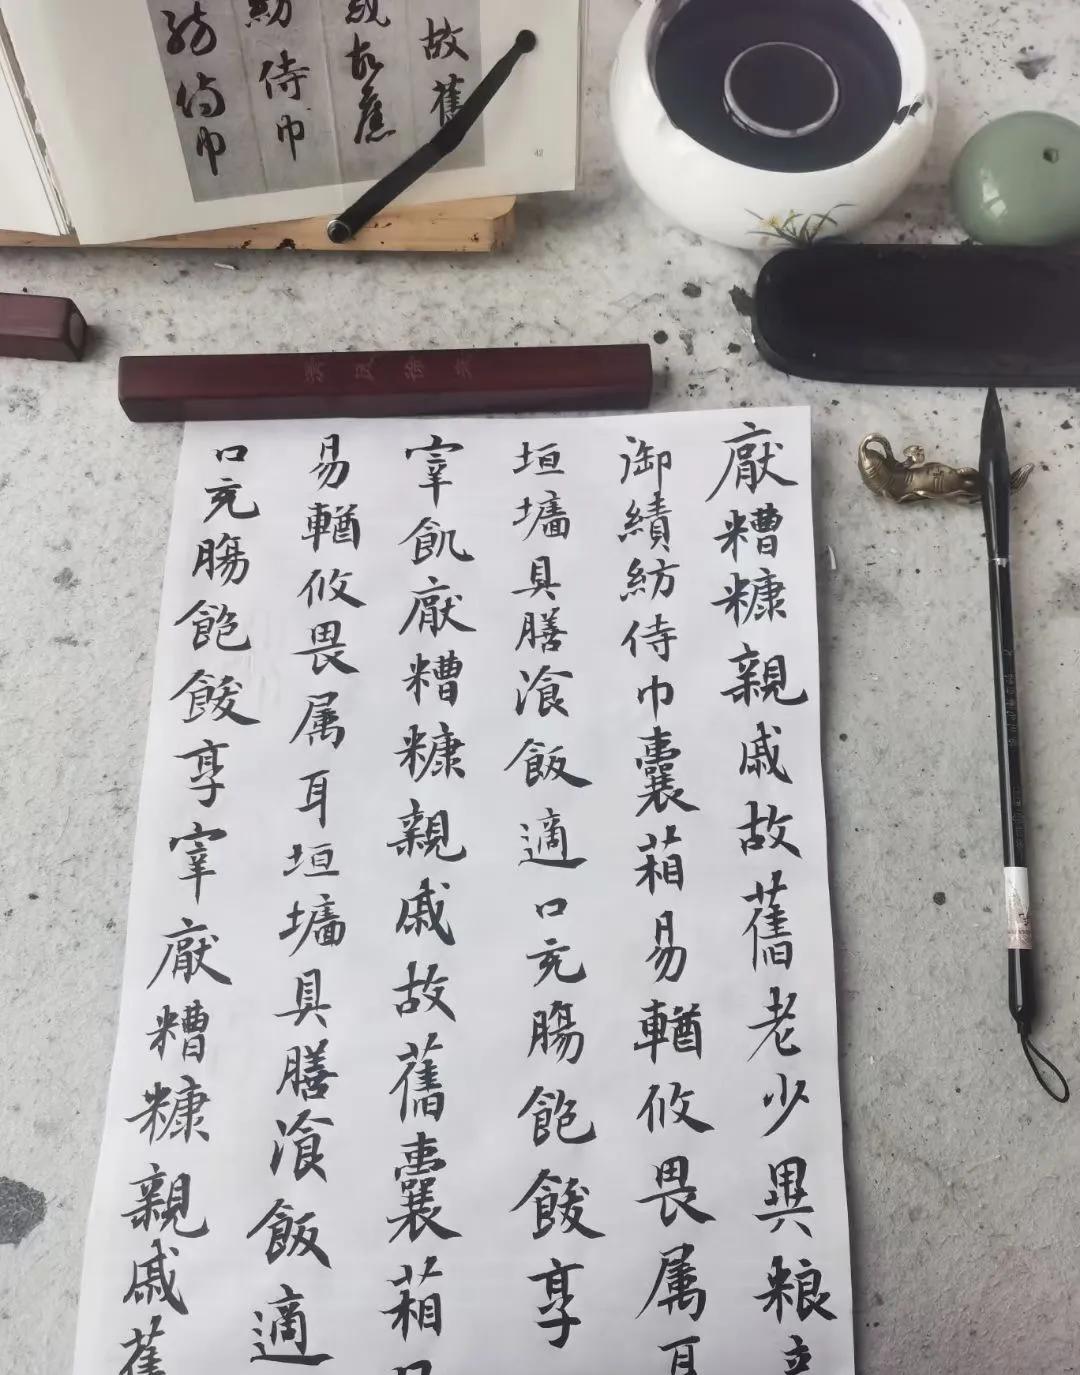 厭糟糠親戚故舊老少異粮
御績紡侍巾囊葙易輶攸畏属耳
垣墉具膳飡飯適口充腸飽餕享
宰飢厭糟糠親戚故舊囊葙口
易輶攸畏属耳垣墉具膳飡飯適
口充腸飽餕享宰厭糟糠親戚舊
故舊
親故舊
紡侍巾
紡侍巾
42